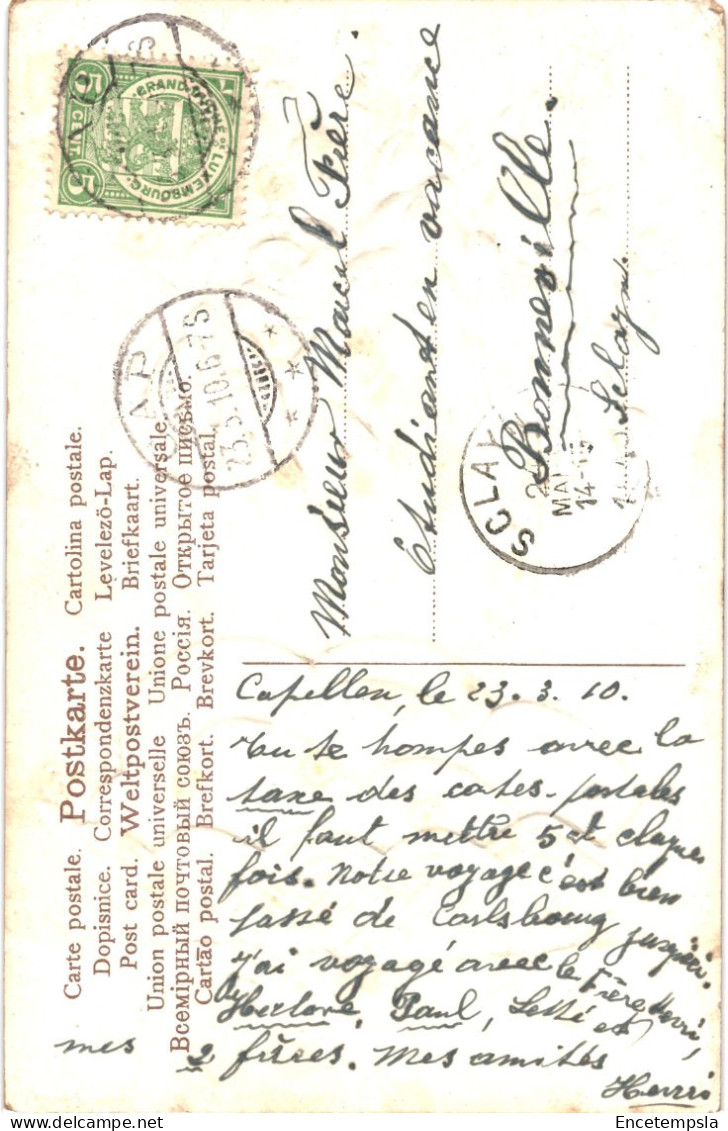 Carte postale. Postkarte. Cartolina postale.
Dopisnice. Correspondenzkarte Levelezö-Lap.
Post card. Weltpostverein. Briefkaart.
Union postale universelle Unione postale universale.
Всемірный почтовый союзъ. Россія. Открытое письмо.
Cartão postal. Brefkort. Brevkort. Tarjeta postal.
GRAND-DUCHÉ DE LUXEMBOURG
5 CENT. 5
CAP
23.3.10.6-7 S
Monsieur Marcel Frère.
Étudiant en vacance
Bonneville.
Sclayn
SCLAY
MAR
14-15
Capellen, le 23.3.10.
Tu te trompes avec la
taxe des cartes-postales
il faut mettre 5 ct chaque
fois. Notre voyage c'est bien
passé de Carlsbourg jusqu'ici.
J'ai voyagé avec le Frère Henri,
Paul, et
mes 2 frères. Mes amitiés
Henri
Encetempsla